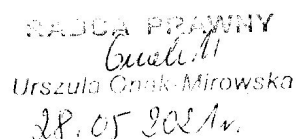 RADCA PRAWNY
Urszula Onak-Mirowska
28.05 2021r.